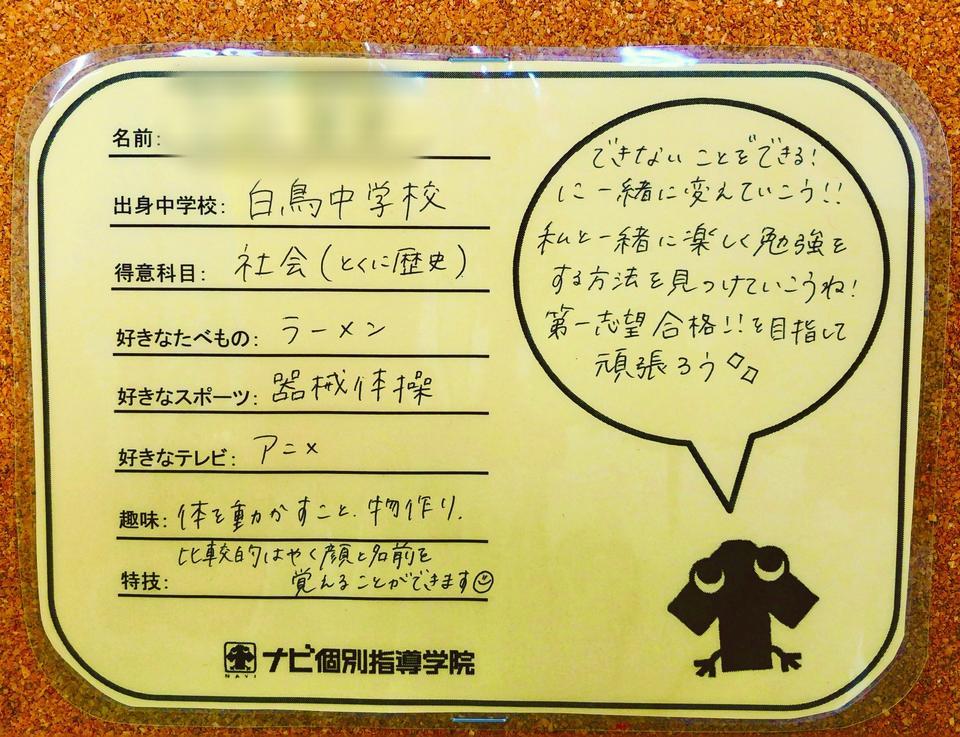 名前:
出身中学校: 白鳥中学校
得意科目: 社会(とくに歴史)
好きなたべもの: ラーメン
好きなスポーツ: 器械体操
好きなテレビ: アニメ
趣味: 体を動かすこと、物作り、
比較的はやく顔と名前を
特技: 覚えることができます
NAVI
ナビ個別指導学院
できないことをできる!
に一緒に変えていこう!!
私と一緒に楽しく勉強を
する方法を見つけていこうね!
第一志望合格!!を目指して
頑張ろう